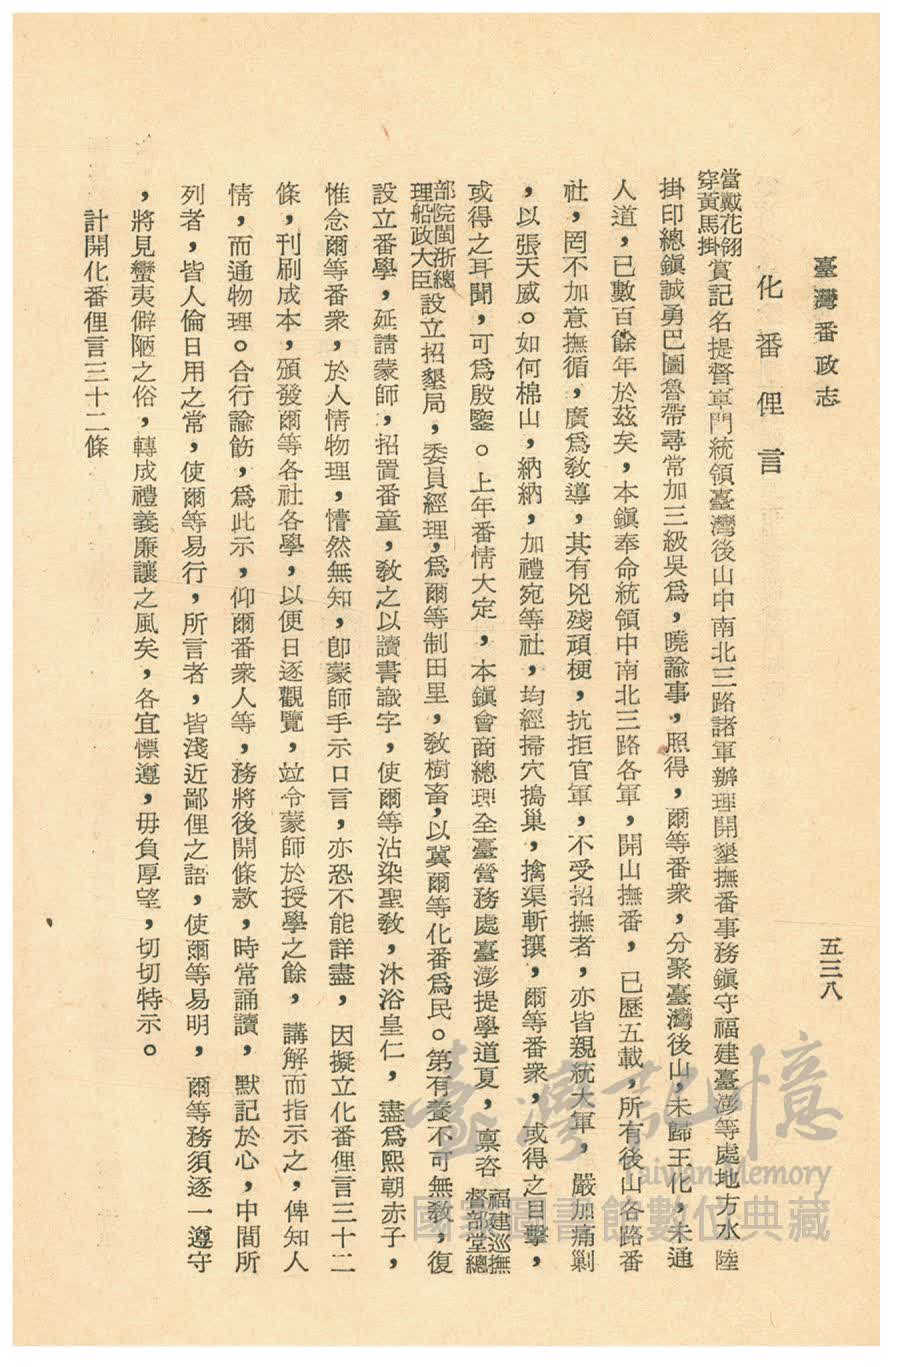 臺灣番政志
五三八
化番俚言
當戴花翎穿黃馬掛賞記名提督軍門統領臺灣後山中南北三路諸軍辦理開墾撫番事務鎭守福建臺澎等處地方水陸
掛印總鎭誠勇巴圖魯帶尋常加三級吳爲，曉諭事，照得，爾等番衆，分聚臺灣後山，未歸王化，未通
人道，已數百餘年於茲矣，本鎭奉命統領中南北三路各軍，開山撫番，已歷五載，所有後山各路番
社，罔不加意撫循，廣爲敎導，其有兇殘頑梗，抗拒官軍，不受招撫者，亦皆親統大軍，嚴加痛剿
，以張天威。如何棉山，納納，加禮宛等社，均經掃穴搗巢，擒渠斬攘，爾等番衆，或得之目擊，
或得之耳聞，可爲殷鑒。上年番情大定，本鎭會商總理全臺營務處臺澎提學道夏，稟咨福建巡撫督部堂總
部院閩浙總理船政大臣設立招墾局，委員經理，爲爾等制田里，敎樹畜，以冀爾等化番爲民。第有養不可無敎，復
設立番學，延請蒙師，招置番童，敎之以讀書識字，使爾等沾染聖敎，沐浴皇仁，盡爲熙朝赤子，
惟念爾等番衆，於人情物理，懵然無知，卽蒙師手示口言，亦恐不能詳盡，因擬立化番俚言三十二
條，刊刷成本，頒發爾等各社各學，以便日逐觀覽，竝令蒙師於授學之餘，講解而指示之，俾知人
情，而通物理。合行諭飭，爲此示，仰爾番衆人等，務將後開條款，時常誦讀，默記於心，中間所
列者，皆人倫日用之常，使爾等易行，所言者，皆淺近鄙俚之語，使爾等易明，爾等務須逐一遵守
，將見蠻夷僻陋之俗，轉成禮義廉讓之風矣，各宜懍遵，毋負厚望，切切特示。
計開化番俚言三十二條
臺灣記憶
Taiwan Memory
國家圖書館數位典藏